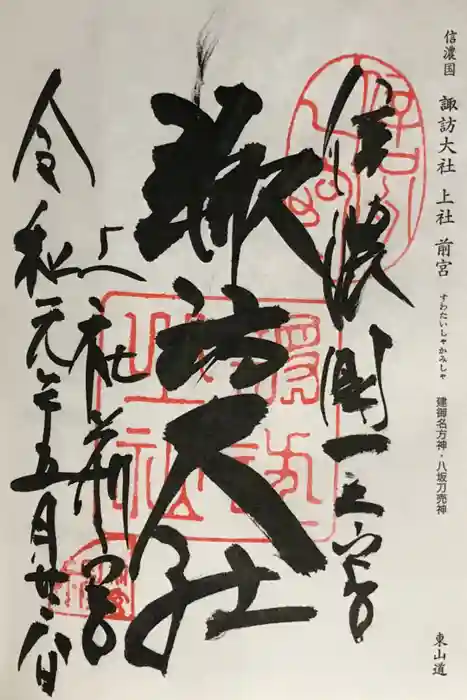 信濃国 諏訪大社 上社 前宮
すわたいしゃかみしゃ
建御名方神・八坂刀売神
東山道
信濃國一之宮
諏訪大社
上社前宮
令和元年五月廿八日